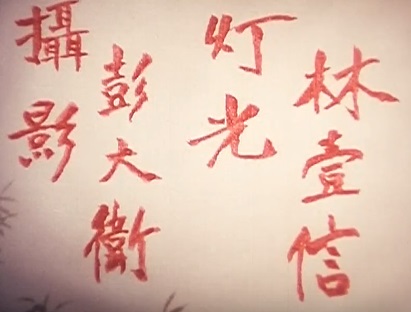 攝影
彭大衛
灯光
林壹信